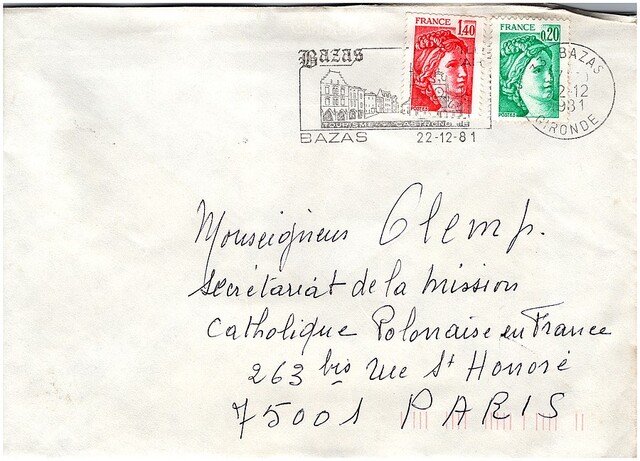 FRANCE 1,40
FRANCE 0,20
POSTES
POSTES
Bazas
TOURISME GASTRONOMIE
BAZAS 22-12-81
BAZAS
GIRONDE
Monseigneur Clemp.
Secrétariat de la Mission
Catholique Polonaise en France
263 bis rue St Honoré
75001 PARIS